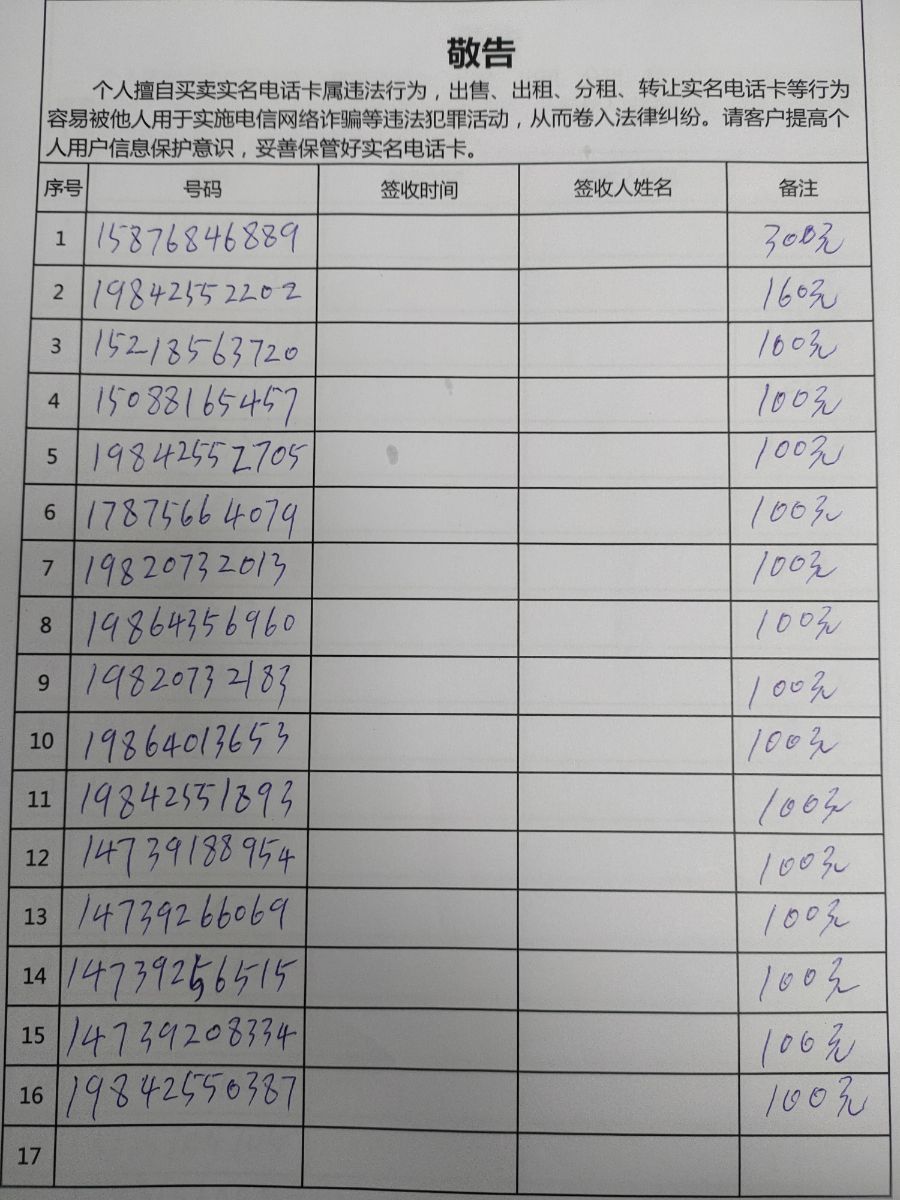 敬告
个人擅自买卖实名电话卡属违法行为，出售、出租、分租、转让实名电话卡等行为
容易被他人用于实施电信网络诈骗等违法犯罪活动，从而卷入法律纠纷。请客户提高个
人用户信息保护意识，妥善保管好实名电话卡。
序号 号码 签收时间 签收人姓名 备注
1 15876846889 300元
2 19842552202 160元
3 15218563720 100元
4 15088165457 100元
5 19842552705 100元
6 17875664079 100元
7 19820732013 100元
8 19864356960 100元
9 19820732183 100元
10 19864013653 100元
11 19842551893 100元
12 14739188954 100元
13 14739266069 100元
14 14739256515 100元
15 14739208334 100元
16 19842550387 100元
17